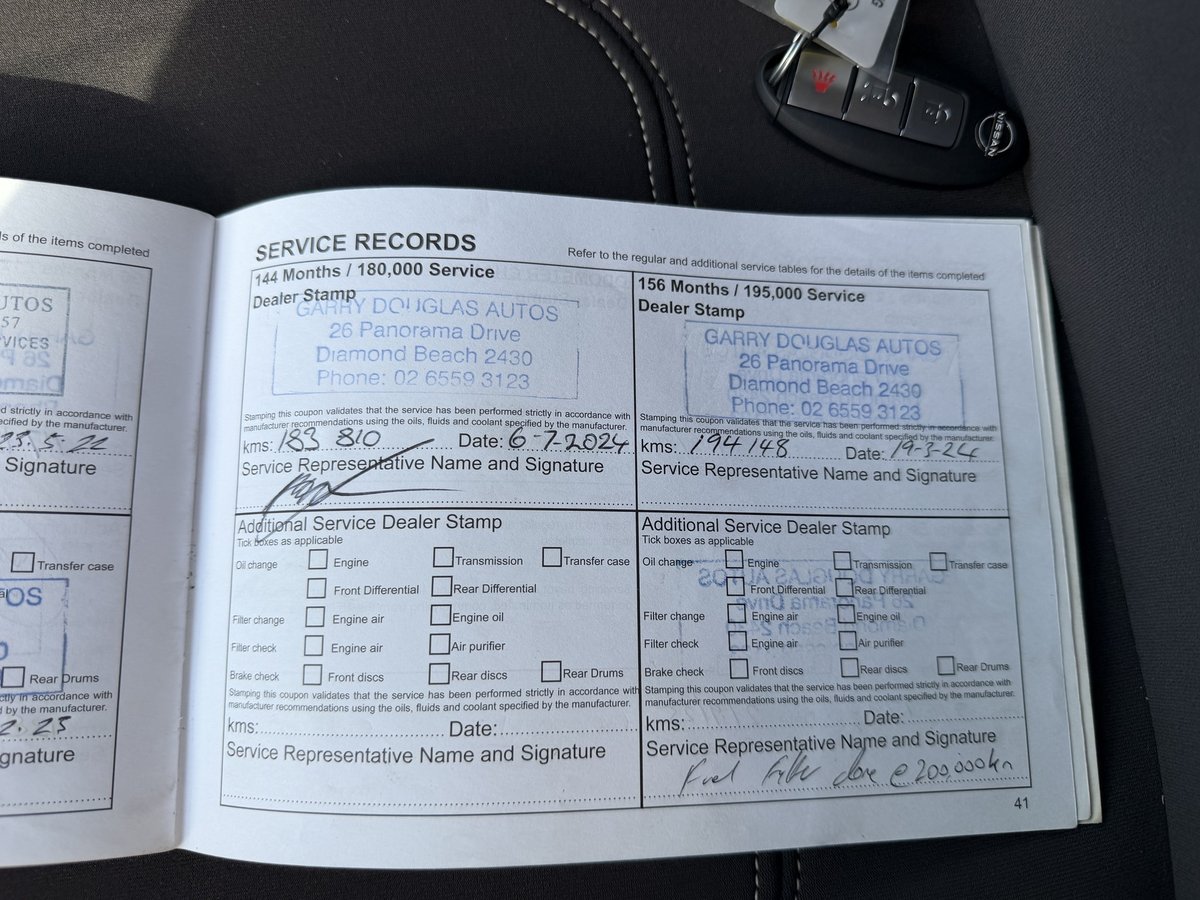 ls of the items completed
UTOS
57
VICES
d strictly in accordance with
ecified by the manufacturer.
23.5.22
Signature
Transfer case
Rear Drums
ctly in accordance with
d by the manufacturer.
2.23
gnature
SERVICE RECORDS
Refer to the regular and additional service tables for the details of the items completed
144 Months / 180,000 Service
Dealer Stamp
GARRY DOUGLAS AUTOS
26 Panorama Drive
Diamond Beach 2430
Phone: 02 6559 3123
Stamping this coupon validates that the service has been performed strictly in accordance with
manufacturer recommendations using the oils, fluids and coolant specified by the manufacturer.
kms: 183 810 Date: 6-7-2024
Service Representative Name and Signature
Additional Service Dealer Stamp
Tick boxes as applicable
Oil change Engine Transmission Transfer case
Front Differential Rear Differential
Filter change Engine air Engine oil
Filter check Engine air Air purifier
Brake check Front discs Rear discs Rear Drums
Stamping this coupon validates that the service has been performed strictly in accordance with
manufacturer recommendations using the oils, fluids and coolant specified by the manufacturer.
kms: Date:
Service Representative Name and Signature
156 Months / 195,000 Service
Dealer Stamp
GARRY DOUGLAS AUTOS
26 Panorama Drive
Diamond Beach 2430
Phone: 02 6559 3123
Stamping this coupon validates that the service has been performed strictly in accordance with
manufacturer recommendations using the oils, fluids and coolant specified by the manufacturer.
kms: 194 148 Date: 19-3-24
Service Representative Name and Signature
Additional Service Dealer Stamp
Tick boxes as applicable
Oil change Engine Transmission Transfer case
Front Differential Rear Differential
Filter change Engine air Engine oil
Filter check Engine air Air purifier
Brake check Front discs Rear discs Rear Drums
Stamping this coupon validates that the service has been performed strictly in accordance with
manufacturer recommendations using the oils, fluids and coolant specified by the manufacturer.
kms: Date:
Service Representative Name and Signature
Fuel Filter done @ 200,000km
41
NISSAN